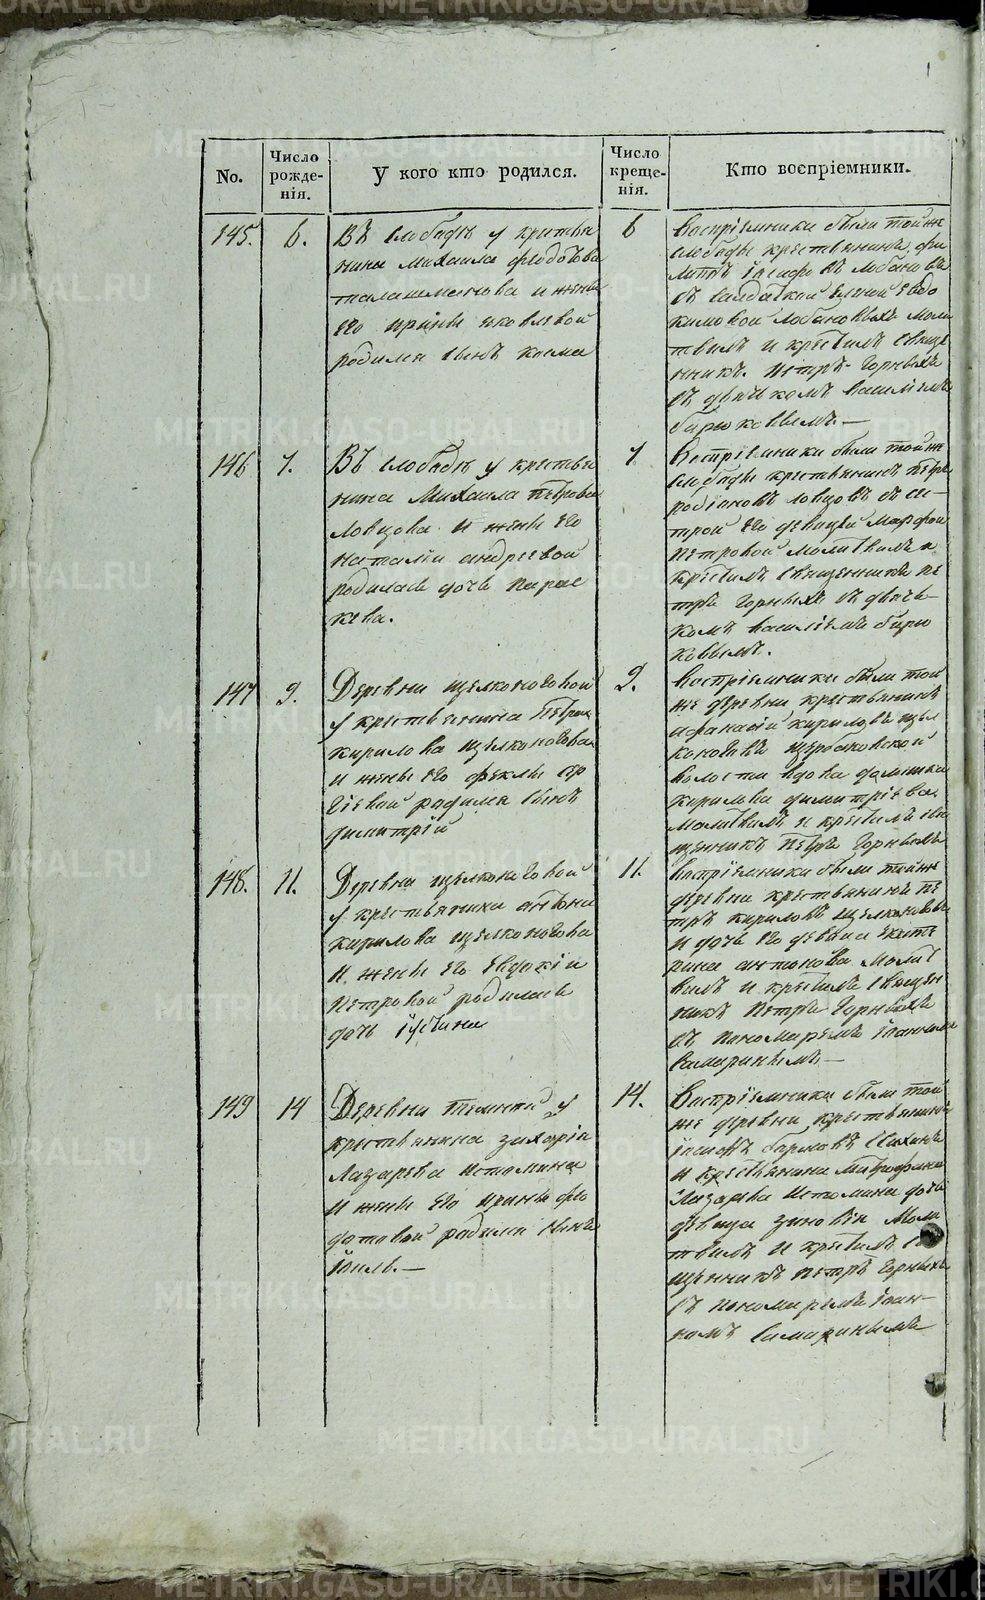 No.
Число рожде-
нія.
У кого кто родился.
Число
креще-
нія.
Кто воспріемники.
145.
6.
Въ слободѣ у крестья
нина Михаила Федотова
талашманова и жены
его ирины яковлевой
родился сынъ косма
6
Воспріемники были тойже
слободы крестьянинъ фи
липъ
съ солдаткой еленой евдо
кимовой лобановыхъ моли
твилъ и крестилъ свяще
нникъ Петръ Горныхъ
съ дьячкомъ василіемъ
бирюковымъ.—
146
7.
Въ слободѣ у крестья
нина Михаила петрова
Ловцова и жены его
наталіи андреевой
родилась дочь парас
кева.
7
Воспріемники были тойже
слободы крестьянинъ петръ
родіоновъ ловцовъ съ се-
трой его девицей марфой
петровой молитвилъ и
крестилъ священникъ пе
тръ Горныхъ съ дьяч-
комъ василіемъ бирю
ковымъ.
147
9.
Деревни щелконоговой
у крестьянина петра
кирилова щелконогова
и жены его феклы
родился сынъ
димитрій
9.
Воспріемники были той
же деревни крестьянинъ
афанасій кириловъ щел
коноговъ щербаковской
волости вдова
кирилова димитріева
молитвилъ и крестилъ свя
щенникъ петръ Горныхъ
148.
11.
Деревни щелконоговой
у крестьянина антона
кирилова щелконогова
и жены его Евдокіи
петровой родилась
дочь іустина
11.
Воспріемники были тойже
деревни крестьянинъ пе
тръ кириловъ щелконоговъ
и дочь его девица екате
рина антонова молит
вилъ и крестилъ священ
никъ Петръ Горныхъ
съ пономаремъ іоанномъ
самаринымъ.—
149
14
Деревни у
крестьянина захаріи
Лазарева истомина
и жены его ирины фе
дотовой родился
14.
Воспріемники были той
же деревни крестьянинъ
и крестьянина митрофана
Лазарева Истомина дочь
девица зиновія Моли
твилъ и крестилъ свя
щенникъ петръ Горныхъ
съ пономаремъ іоан-
номъ Самаринымъ
METRIKI.GASO-URAL.RU